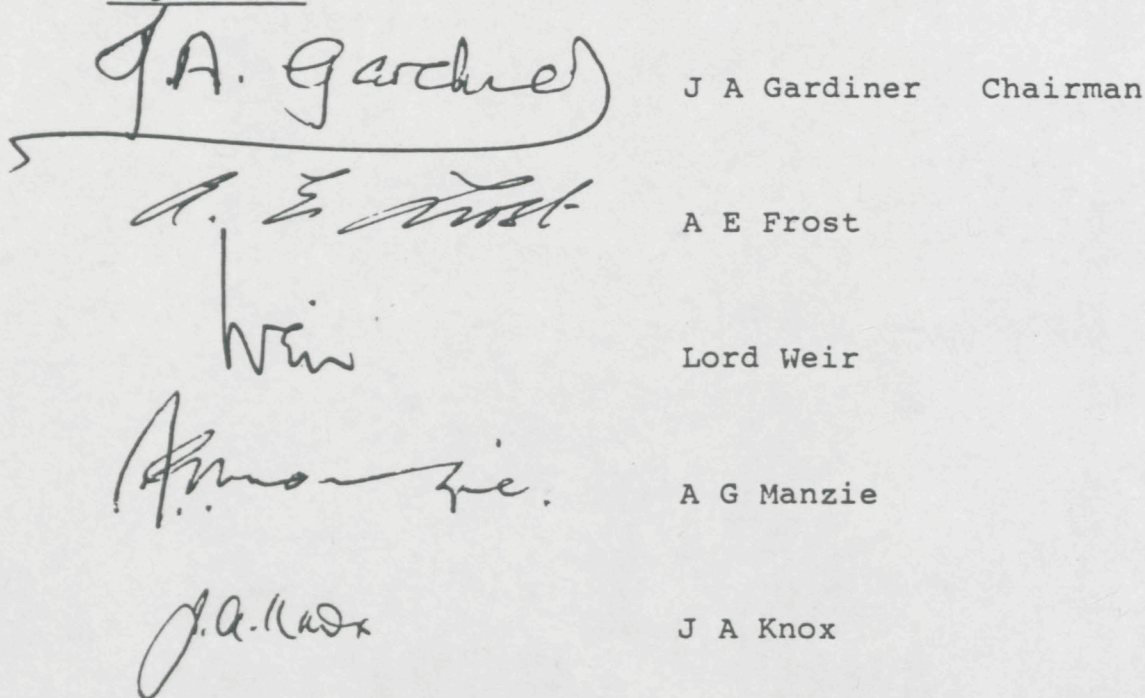 J A. Gardiner J A Gardiner Chairman
A. E Frost A E Frost
Weir Lord Weir
A G Manzie. A G Manzie
J. A. Knox J A Knox